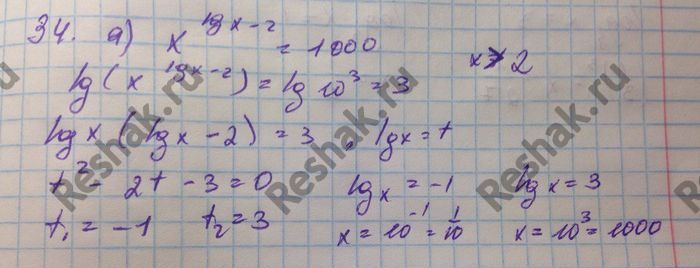 34. а) x^(lg x-2) = 1000
x > 2
lg(x^(lg x-2)) = lg 10^3 = 3
lg x (lg x - 2) = 3, lg x = t
t^2 - 2t - 3 = 0 lg x = -1 lg x = 3
t₁ = -1 t₂ = 3 x = 10^(-1) = 1/10 x = 10^3 = 1000
Reshak.ru Reshak.ru Reshak.ru Reshak.ru